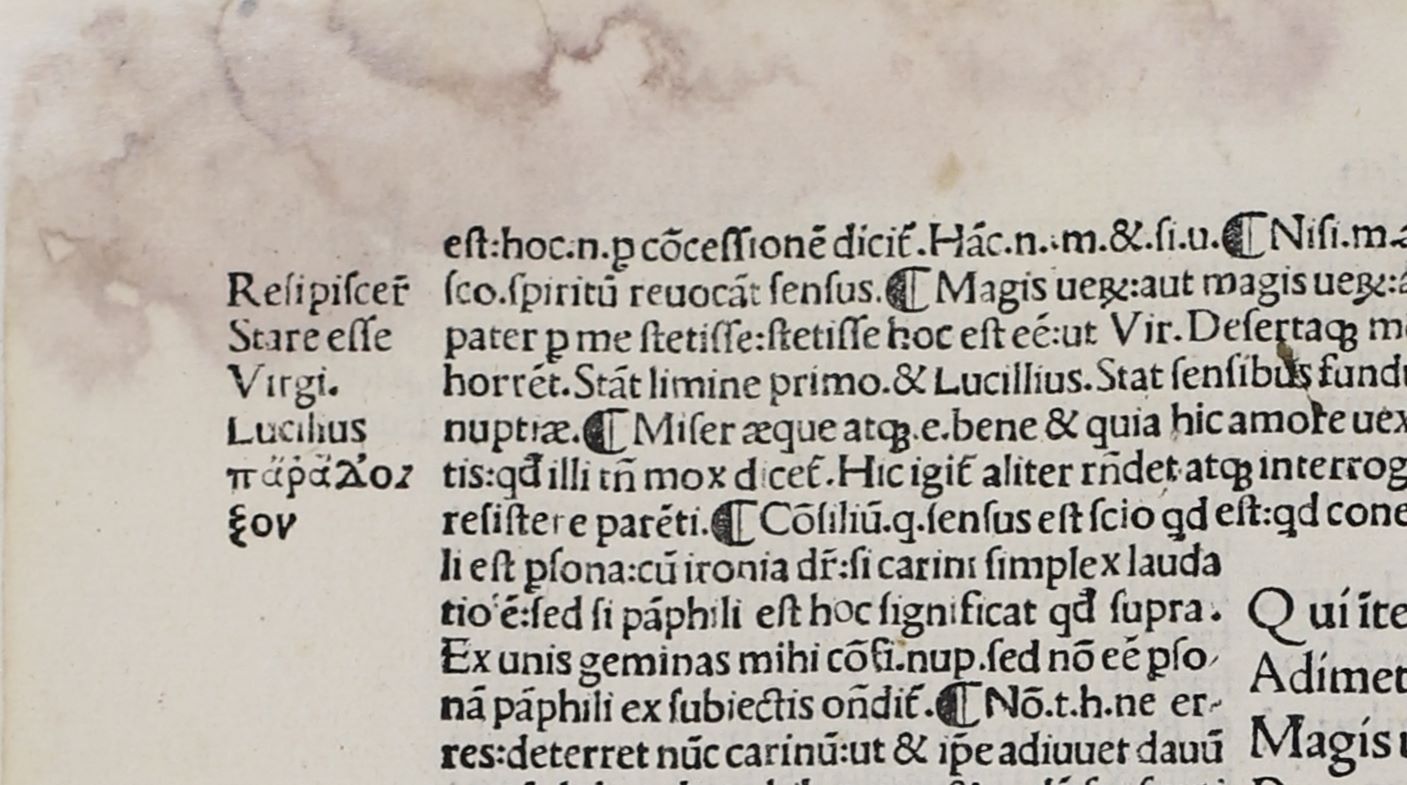 Reſipiſcer̄
Stare eſſe
Virgi.
Lucilius
πἄρἄλοι
ξον
eſt:hoc.n.ꝑ cōceſſionē dicit̄.Hāc.n..m.&.ſi.u.¶ Niſi.m.
ſco.ſpiritū reuocāt ſenſus.¶ Magis ueꝝ:aut magis ueꝝ:
pater ꝑ me ſtetiſſe:ſtetiſſe hoc eſt eé:ut Vir.Deſertaqꝫ
horrēt.Stāt limine primo.& Lucillius.Stat ſenſibus
nuptiæ.¶ Miſer æque atqꝫ.e.bene & quia hic amore
tis:qđ illi tñ mox dicet̄.Hic igit̄ aliter rñdet atqꝫ
reſiſtere parēti.¶ Cōſiliū.q.ſenſus eſt ſcio qd eſt:qd
li eſt ꝑſona:cū ironia dr̄:ſi carini ſimplex lauda
tio ē:ſed ſi pāphili eſt hoc ſignificat qđ ſupra.
Ex unis geminas mihi cōfi.nup.ſed nō eé ꝑſo-
nā pāphili ex ſubiectis oñdit̄.¶ Nō.t.h.ne er-
res:deterret nūc carinū:ut & ip̄e adiuuet dauū
Q uí īte
Adímet
Magís